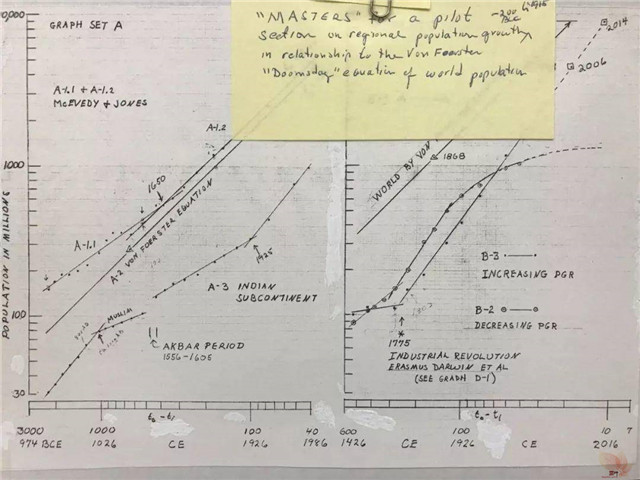 "MASTERS" for a pilot
section on regional population growth
in relationship to the Von Foerster
"Doomsday" equation of world population
GRAPH SET A
A-1.1 + A-1.2
McEVEDY + JONES
A-1.2
1650
A-1.1
A-2 VON FOERSTER EQUATION
1925
A-3 INDIAN
SUBCONTINENT
MUSLIM
AKBAR PERIOD
1556-1605
POPULATION IN MILLIONS
10,000
1000
100
30
3000 1000 100 40
t₀-t₁
974 BCE 1026 CE 1926 1986
2014
2006
WORLD BY VON
1868
B-3
INCREASING PGR
B-2
DECREASING PGR
1775
INDUSTRIAL REVOLUTION
ERASMUS DARWIN ET AL
(SEE GRAPH D-1)
600 100 10 7
t₀-t₁
1426 CE 1926 CE 2016